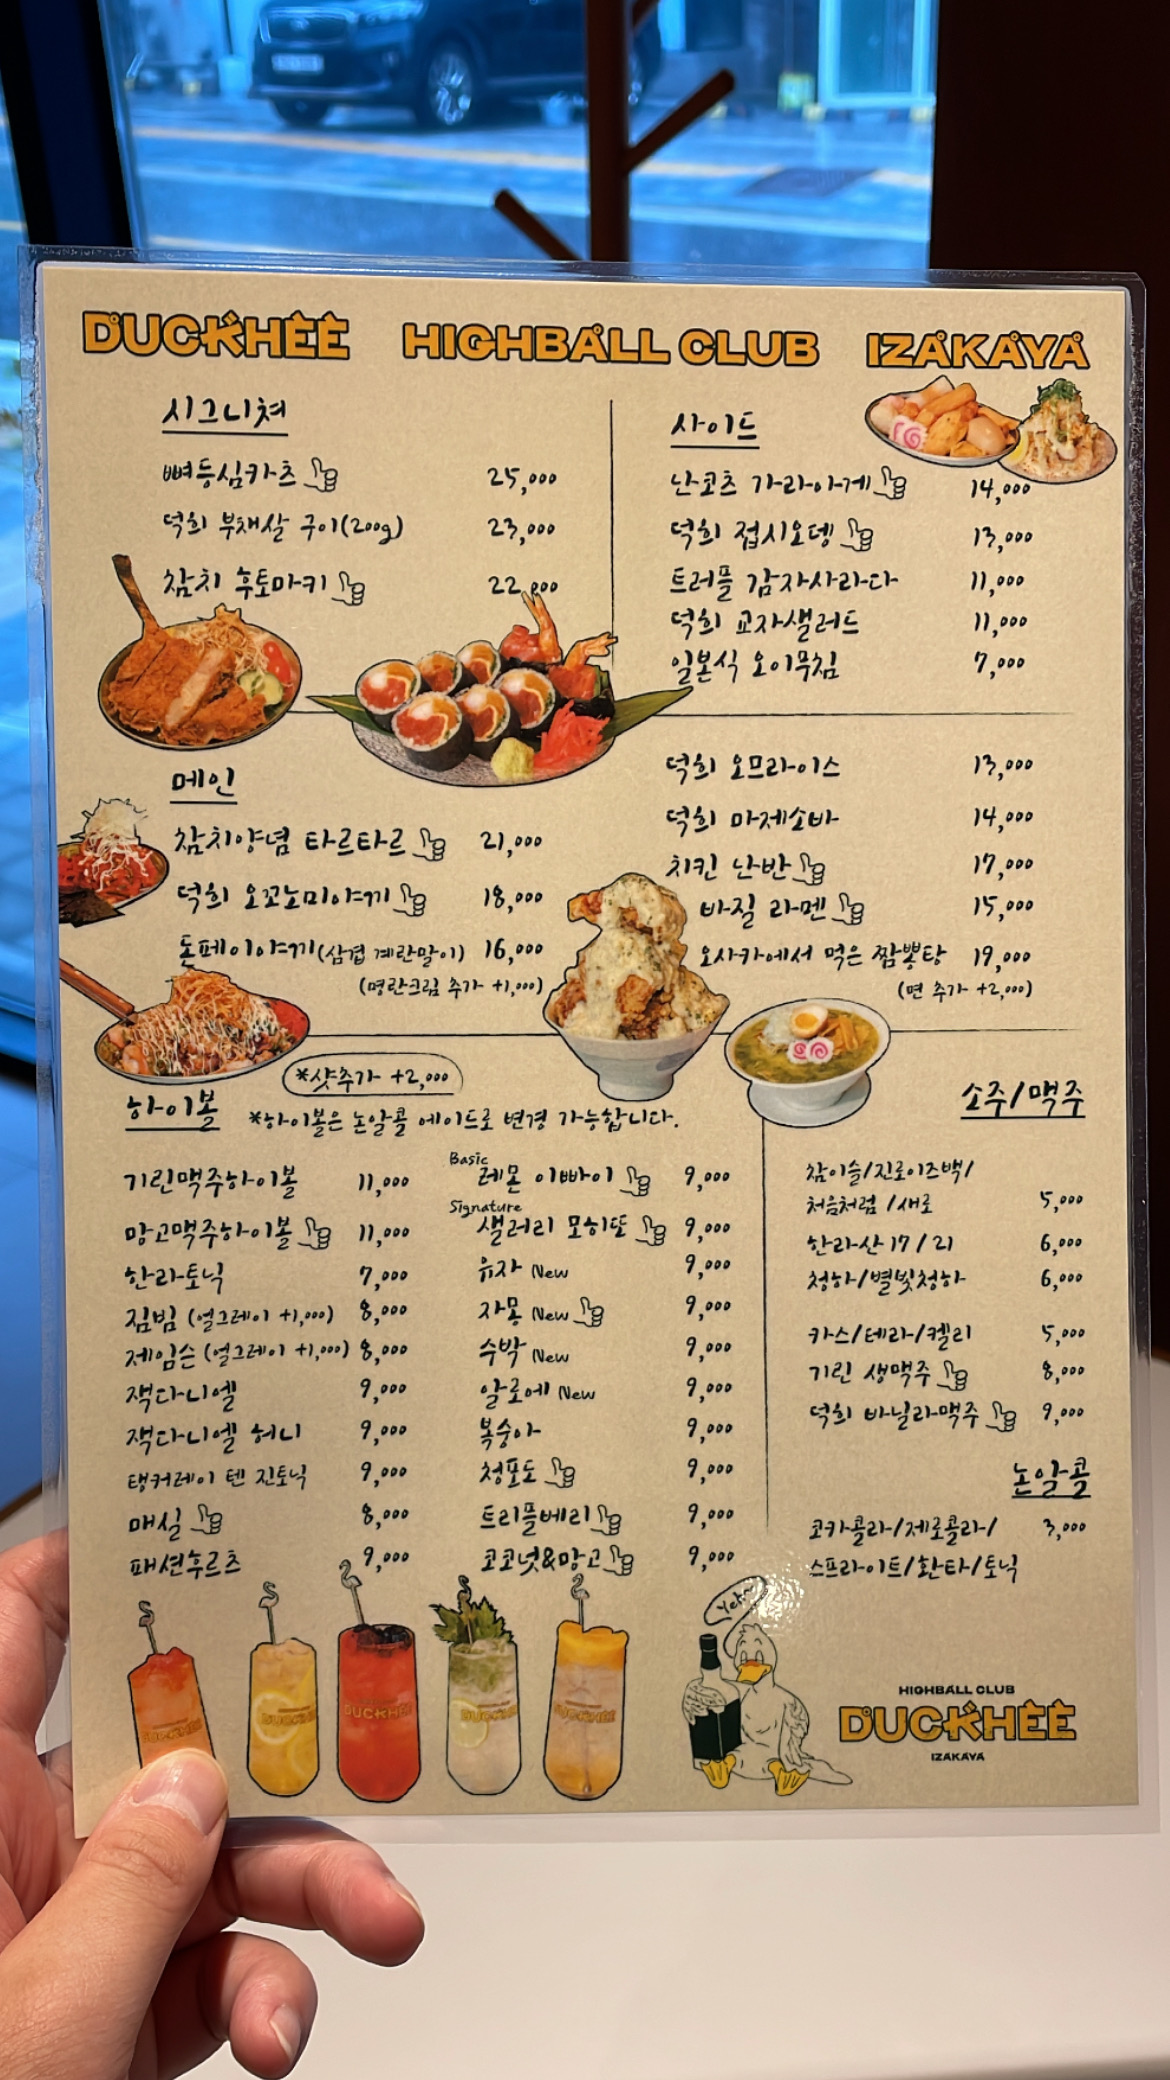 DUCKHEE HIGHBALL CLUB IZAKAYA
시그니쳐
뼈등심카츠 25,000
덕희 부채살 구이(200g) 23,000
참치 후토마키 22,000
사이드
난코츠 가라아게 14,000
덕희 접시오뎅 13,000
트러플 감자사라다 11,000
덕희 교자샐러드 11,000
일본식 오이무침 7,000
메인
참치양념 타르타르 21,000
덕희 오꼬노미야끼 18,000
돈페이야끼(삼겹 계란말이) 16,000
(명란크림 추가 +1,000)
덕희 오므라이스 13,000
덕희 마제소바 14,000
치킨 난반 17,000
바질 라멘 15,000
오사카에서 먹은 짬뽕탕 19,000
(면 추가 +2,000)
*샷추가 +2,000
하이볼 *하이볼은 논알콜 에이드로 변경 가능합니다.
기린맥주하이볼 11,000
망고맥주하이볼 11,000
한라토닉 7,000
짐빔 (얼그레이 +1,000) 8,000
제임슨 (얼그레이 +1,000) 8,000
잭다니엘 9,000
잭다니엘 허니 9,000
탱커레이 텐 진토닉 9,000
매실 8,000
패션후르츠 9,000
Basic
레몬 이빠이 9,000
Signature
샐러리 모히또 9,000
유자 New 9,000
자몽 New 9,000
수박 New 9,000
알로에 New 9,000
복숭아 9,000
청포도 9,000
트리플베리 9,000
코코넛&망고 9,000
소주/맥주
참이슬/진로이즈백/
처음처럼/새로 5,000
한라산 17/21 6,000
청하/별빛청하 6,000
카스/테라/켈리 5,000
기린 생맥주 8,000
덕희 바닐라맥주 9,000
논알콜
코카콜라/제로콜라/ 3,000
스프라이트/환타/토닉
DUCKHEE
DUCKHEE
DUCKHEE
DUCKHEE
HIGHBALL CLUB
DUCKHEE
IZAKAYA